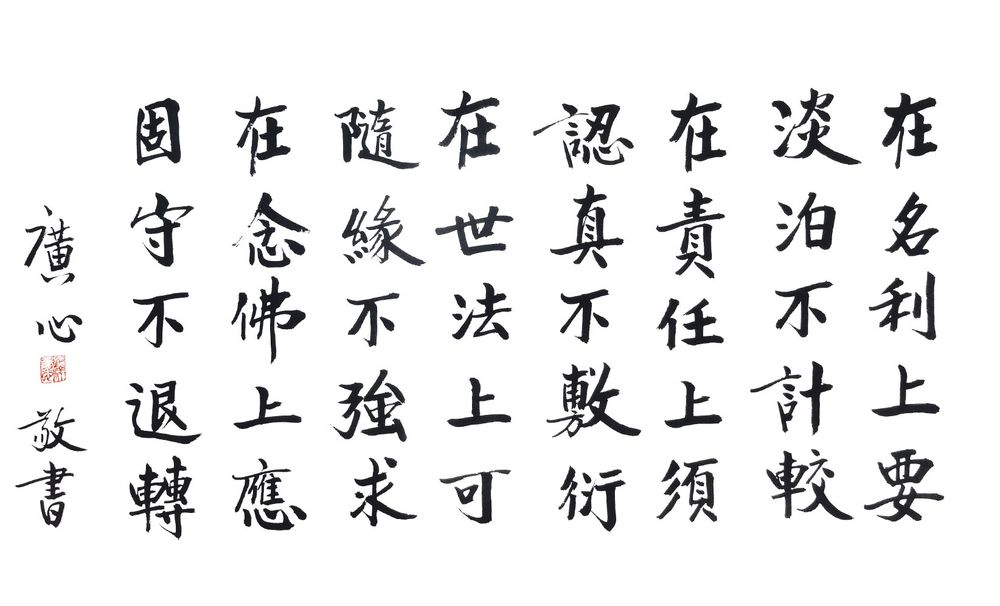 在名利上要
淡泊不計較
在責任上須
認真不敷衍
在世法上可
隨緣不強求
在念佛上應
固守不退轉
廣心敬書